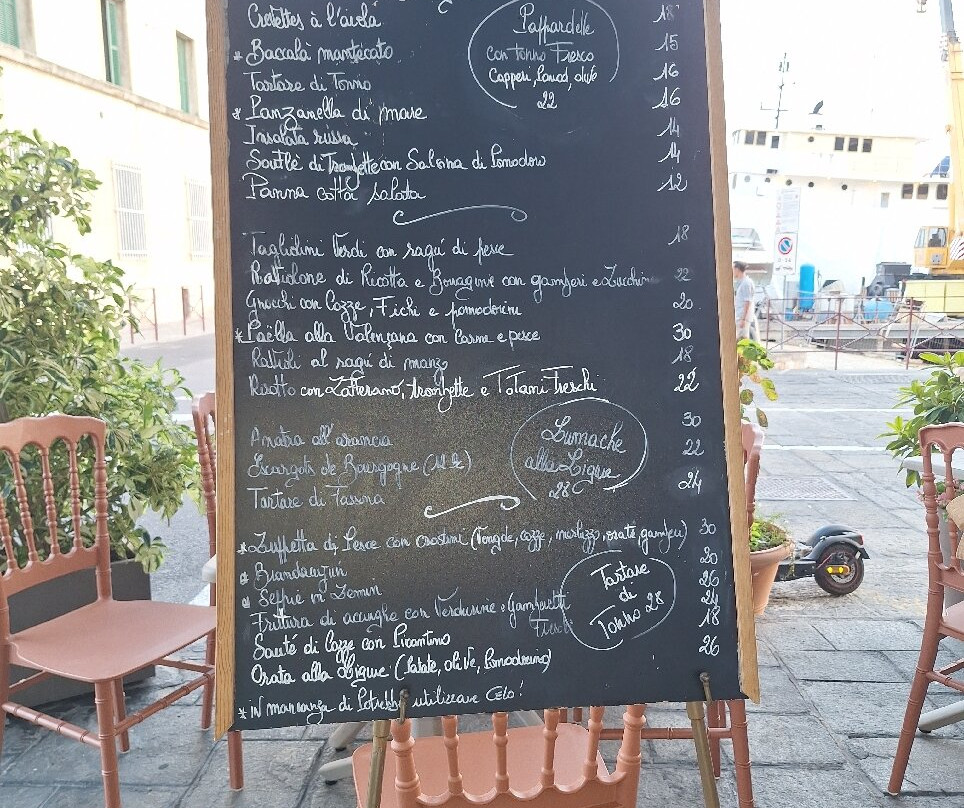 Crevettes à l'aiolà 18
* Baccalà mantecato 15
Tartare di Tonno 16
* Panzanella di mare 16
Insalata russa 14
Soutlè di Trombette con Salsina di Pomodoro 14
Panna cotta salata 12
Pappardelle
con tonno Fresco
Capperi, Pomod, olive
22
Tagliolini Verdi con ragú di pesce 18
di Ricotta e Boragine con gamberi e Zucchin 22
Gnocchi con Cozze, Fichi e pomodorini 20
* Paella alla Valenzana con Carne e pesce 30
Ravioli al ragú di manzo 18
Risotto con Zafferano, trombette e Totani Freschi 22
Anatra all'arancia 30
Escargots de Bourgogne 22
Tartare di Fassona 24
Lumache
alla Ligure
28
* Zuppetta di Pesce con crostini (Vongole, cozze, merluzzo, orata, gamberi) 30
* Brandacujun 20
* Seppie in Zemin 26
Frittura di acciughe con Verdurine e Gamberetti 24
Freschi
Sauté di Cozze con Picantino 18
Orata alla Ligure (Patate, olive, Pomodorino) 26
Tartare
di
Tonno 28
* in mancanza di Potrebbe utilizzare Gelo!